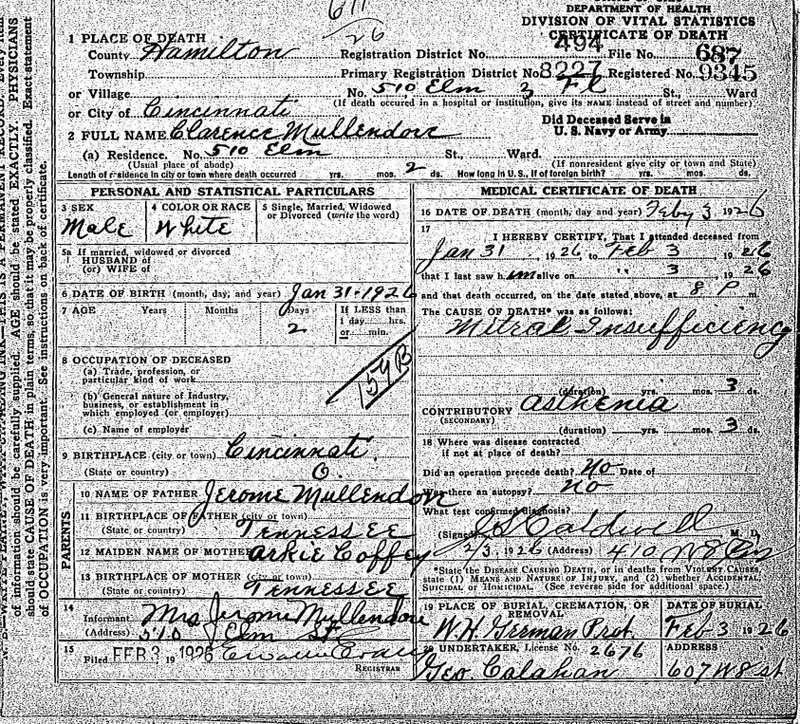 DEPARTMENT OF HEALTH
DIVISION OF VITAL STATISTICS
CERTIFICATE OF DEATH
26
1 PLACE OF DEATH
County Hamilton Registration District No. 494 File No. 687
Township Primary Registration District No. 8227 Registered No. 9345
or Village No. 510 Elm 3 Fl St., Ward
(If death occured in a hospital or institution, give its NAME instead of street and number)
or City of Cincinnati
Did Deceased Serve in
U. S. Navy or Army
2 FULL NAME Clarence Mullendore
(a) Residence. No. 510 Elm St., Ward.
(Usual place of abode) (If nonresident give city or town and State)
Length of residence in city or town where death occurred yrs. mos. 2 ds. How long in U. S., if of foreign birth? yrs. mos. ds.
PERSONAL AND STATISTICAL PARTICULARS
3 SEX
Male
4 COLOR OR RACE
White
5 Single, Married, Widowed
or Divorced (write the word)
5a If married, widowed or divorced
HUSBAND of
(or) WIFE of
6 DATE OF BIRTH (month, day, and year) Jan 31-1926
7 AGE Years Months Days
2
If LESS than
1 day......hrs.
or......min.
8 OCCUPATION OF DECEASED
(a) Trade, profession, or
particular kind of work
(b) General nature of Industry,
business, or establishment in
which employed (or employer)
(c) Name of employer
157B
9 BIRTHPLACE (city or town) Cincinnati
(State or country) O.
PARENTS
10 NAME OF FATHER Jerome Mullendore
11 BIRTHPLACE OF FATHER (city or town)
(State or country) Tennessee
12 MAIDEN NAME OF MOTHER Arkie Coffey
13 BIRTHPLACE OF MOTHER (city or town)
(State or country) Tennessee
14
Informant Mrs Jerome Mullendore
(Address) 510 Elm St
15
Filed FEB 3 1926
REGISTRAR
MEDICAL CERTIFICATE OF DEATH
16 DATE OF DEATH (month, day and year) Feby 3 1926
17
I HEREBY CERTIFY, That I attended deceased from
Jan 31, 1926 to Feb 3 1926
that I last saw him alive on " 3 1926
and that death occurred, on the date stated above, at 8 P m.
The CAUSE OF DEATH* was as follows:
Mitral Insufficiency
(duration) yrs. mos. 3 ds.
CONTRIBUTORY asthenia
(SECONDARY)
(duration) yrs. mos. 3 ds.
18 Where was disease contracted
if not at place of death?
Did an operation precede death? No Date of
Was there an autopsy? no
What test confirmed diagnosis?
(Signed) J S Caldwell M. D.
2/3, 1926 (Address) 410 W 8
*State the DISEASE CAUSING DEATH, or in deaths from VIOLENT CAUSES,
state (1) MEANS AND NATURE OF INJURY, and (2) whether ACCIDENTAL,
SUICIDAL or HOMICIDAL. (See reverse side for additional space.)
19 PLACE OF BURIAL, CREMATION, OR
REMOVAL
W.H. German Prot.
DATE OF BURIAL
Feb 3 1926
20 UNDERTAKER, License No. 2676
Geo Calahan
ADDRESS
607 W 8 st
of information should be carefully supplied. AGE should be stated EXACTLY. PHYSICIANS
should state CAUSE OF DEATH in plain terms, so that it may be properly classified. Exact statement
of OCCUPATION is very important. See instructions on back of certificate.